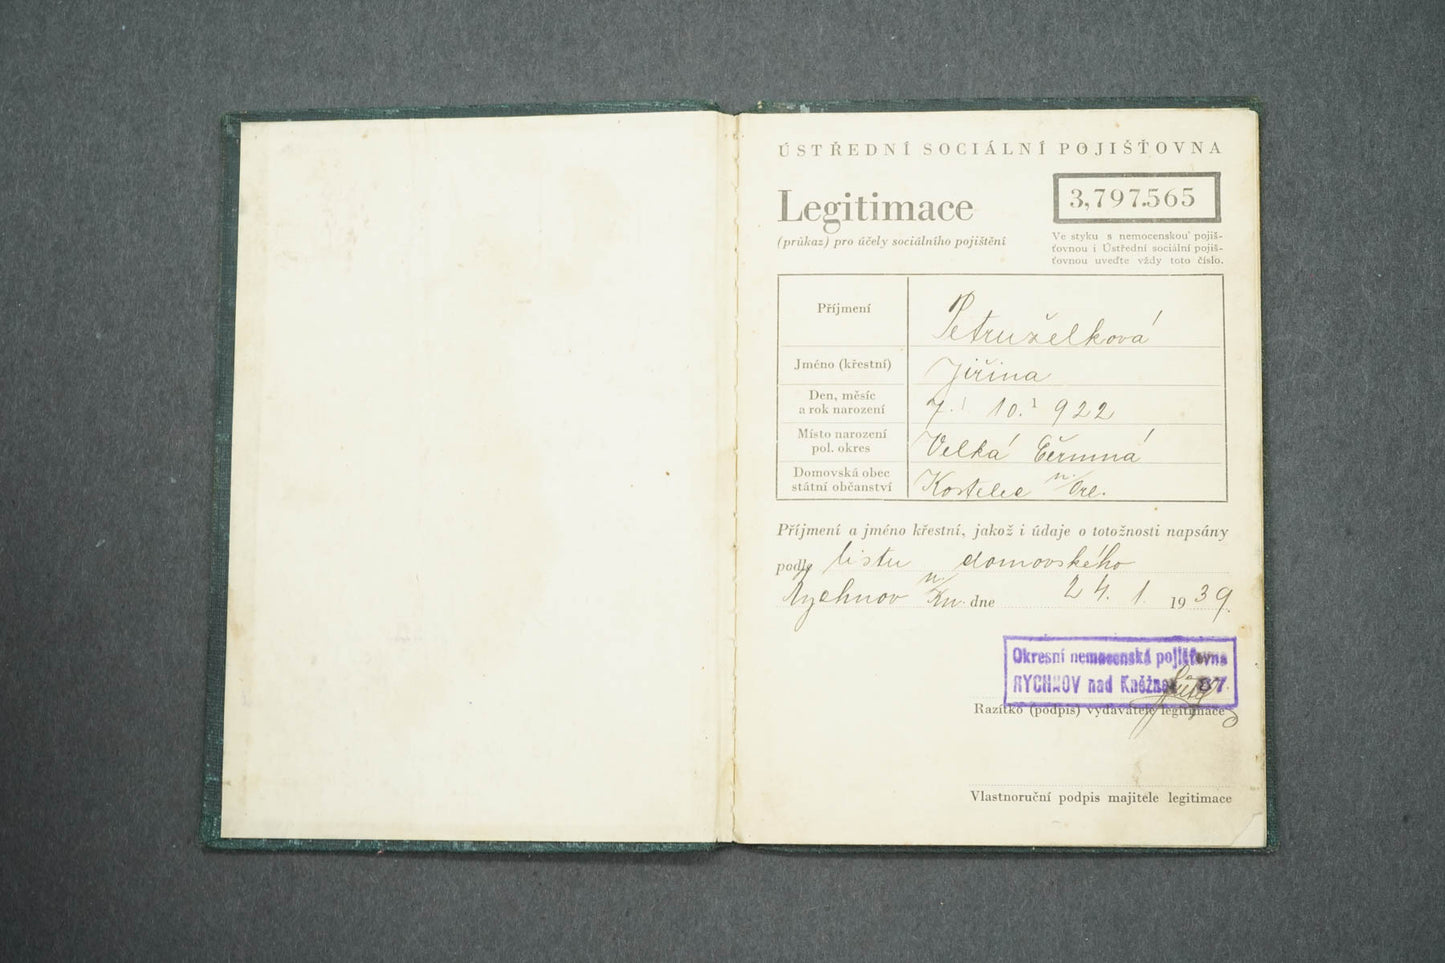 ÚSTŘEDNÍ SOCIÁLNÍ POJIŠŤOVNA
Legitimace
(průkaz) pro účely sociálního pojištění
3,797.565
Ve styku s nemocenskou pojiš-
ťovnou i Ústřední sociální pojiš-
ťovnou uveďte vždy toto číslo.
Příjmení
Petruželková
Jméno (křestní)
Jiřina
Den, měsíc
a rok narození
7. 10. 1922
Místo narození
pol. okres
Velká Čermná
Domovská obec
státní občanství
Kostelec n./Orl.
Příjmení a jméno křestní, jakož i údaje o totožnosti napsány
podle listu domovského
Rychnov n/Kn. dne 24. 1. 1939.
Okresní nemocenská pojišťovna
RYCHNOV nad Kněžnou 87
Razítko (podpis) vydavatele legitimace
Vlastnoruční podpis majitele legitimace